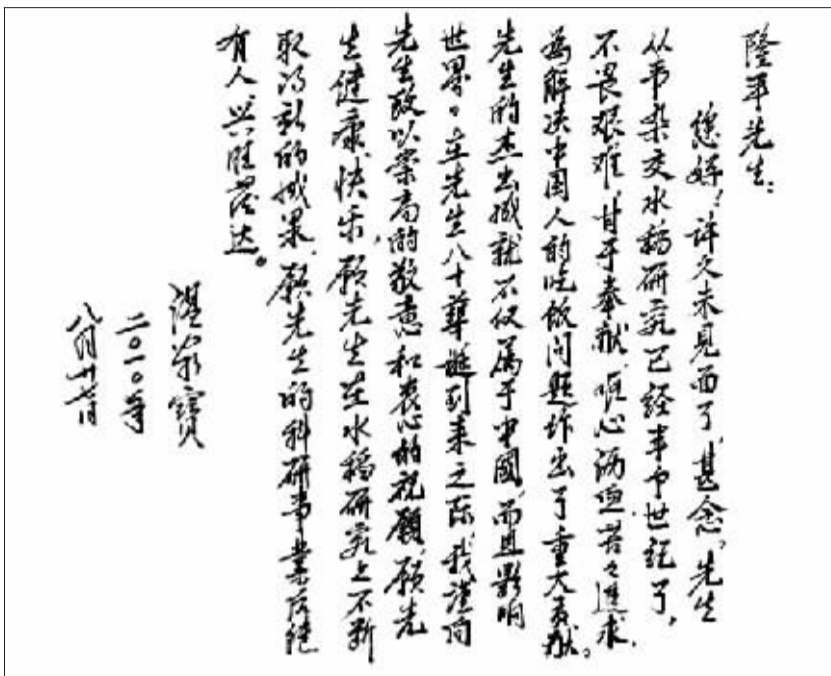 隆平先生：
您好！许久未见面了，甚念。先生
从事杂交水稻研究已经半个世纪了，
不畏艰难，甘于奉献，呕心沥血，苦苦追求，
为解决中国人的吃饭问题作出了重大贡献。
先生的杰出成就不仅属于中國，而且影响
世界。在先生八十華誕到来之际，我谨向
先生致以崇高的敬意和衷心的祝願，願先
生健康、快乐，願先生在水稻研究上不断
取得新的成果，願先生的科研事業后继
有人、兴旺发达。
温家寶
二〇一〇年
八月廿七日